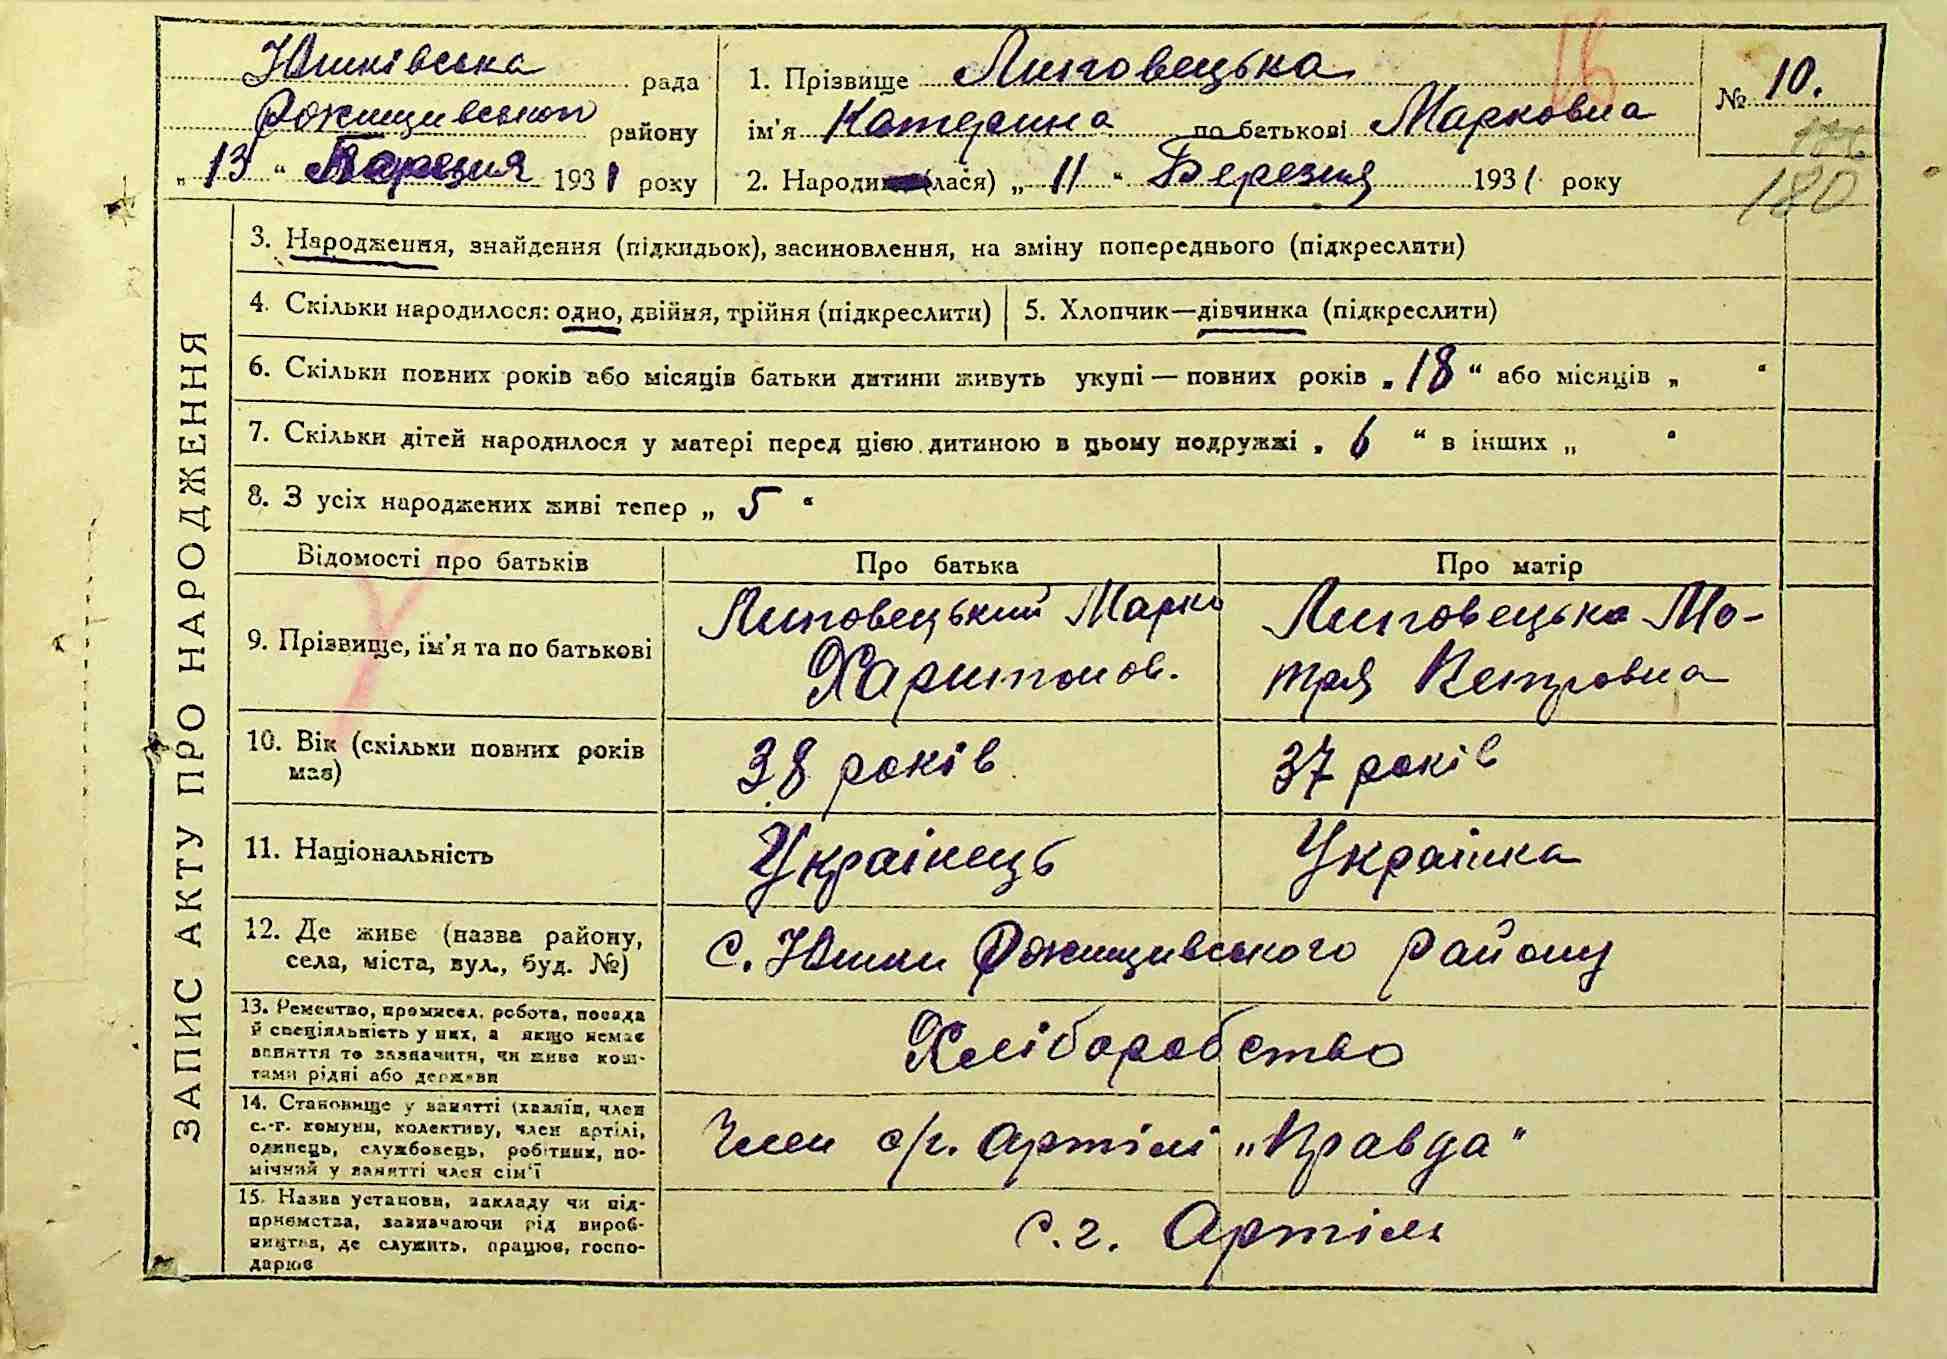 Юшківська рада
Рожищивського району
„13“ Березня 1931 року
1. Прізвище Липовецька
ім'я Катерина по батькові Марковна
№ 10.
180
2. Народи (лася) „11“ Березня 1931 року
ЗАПИС АКТУ ПРО НАРОДЖЕННЯ
3. Народження, знайдення (підкидьок), засиновлення, на зміну попереднього (підкреслити)
4. Скільки народилося: одно, двійня, трійня (підкреслити) 5. Хлопчик—дівчинка (підкреслити)
6. Скільки повних років або місяців батьки дитини живуть укупі — повних років „18“ або місяців „ “
7. Скільки дітей народилося у матері перед цією дитиною в цьому подружжі „6“ в інших „ “
8. З усіх народжених живі тепер „5“
Відомості про батьків Про батька Про матір
9. Прізвище, ім'я та по батькові
Липовецький Марко
Харитонов.
Липовецька Мо-
тря Петровна
10. Вік (скільки повних років
має)
38 років
37 років
11. Національність
Українець
Українка
12. Де живе (назва району,
села, міста, вул., буд. №)
с. Юшки Рожищивського району
13. Ремество, промисел, робота, посада
й спеціяльність у них, а якщо немає
заняття то зазначити, чи живе кош-
тами рідні або держави
Хліборобство
14. Становище у занятті (хазяїн, член
с.-г. комуни, колективу, член артілі,
одинець, службовець, робітник, по-
мічний у занятті член сім'ї
Член с/г. артілі „Правда“
15. Назва установи, закладу чи під-
приємства, зазначаючи рід вироб-
ництва, де служить, працює, госпо-
дарює
с. г. Артіль